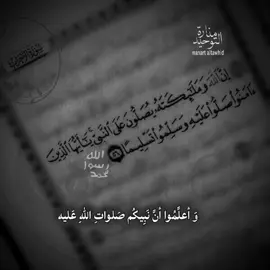 منارة
التوحيد
manart altawhid
إن الله وملئكته يصلون على النبي يأيها الذين
ءامنوا صلوا عليه وسلموا تسليما
الله
رسول
محمد
وَ أعلَمُوا أنَّ نَبِيكُم صَلواتِ اللهِ عَليه